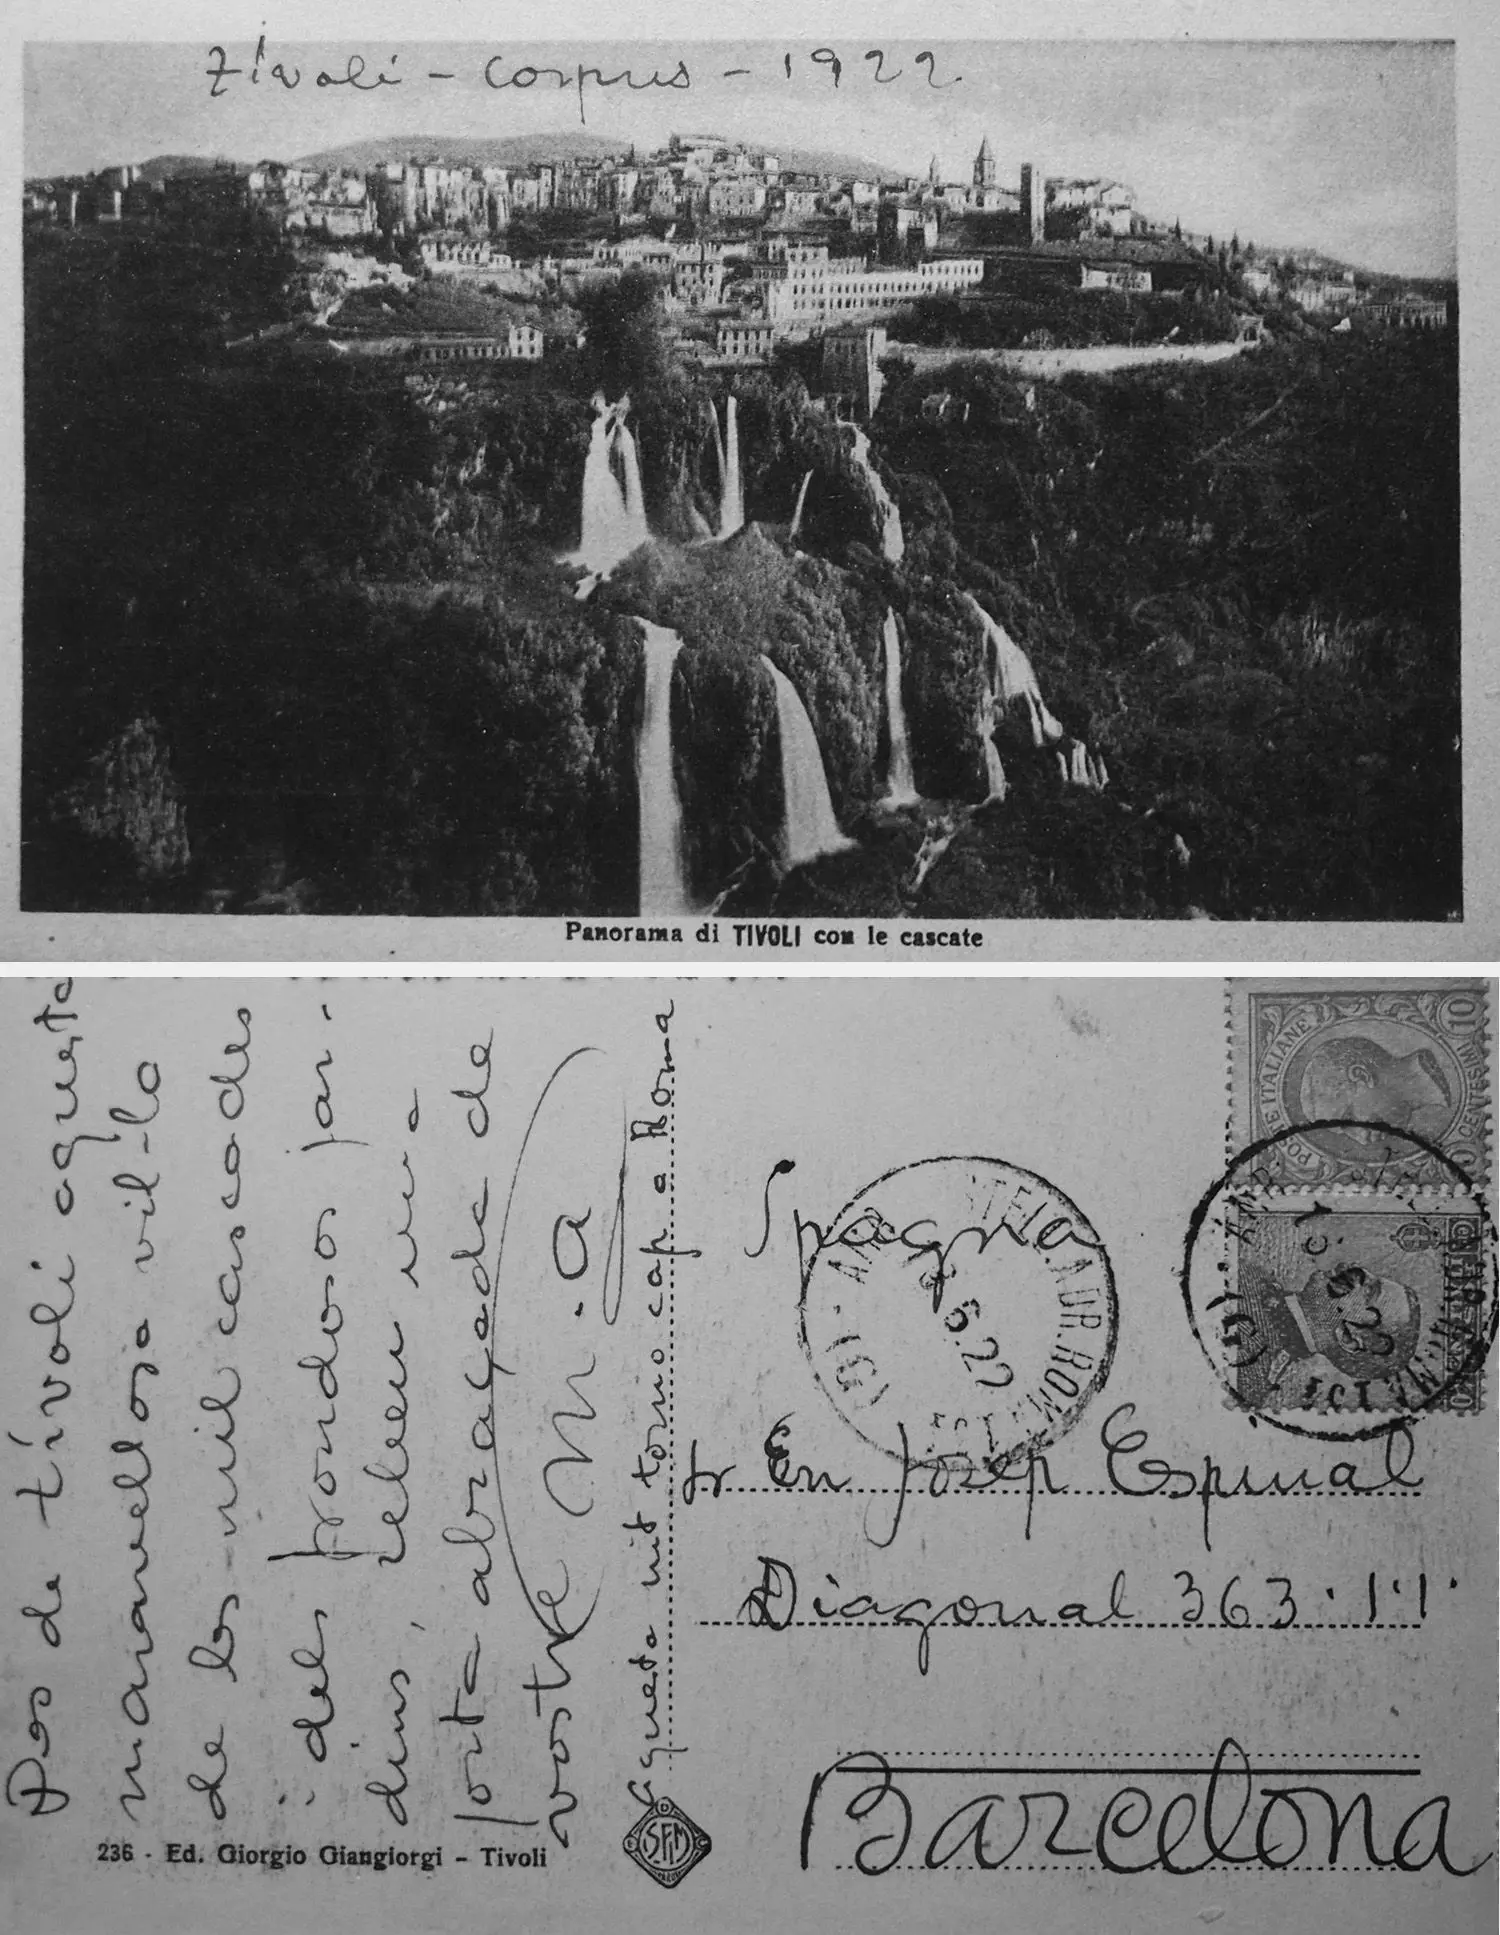 Tívoli - Corpus - 1922
Panorama di TIVOLI con le cascate
Des de tívoli aquesta
maravellosa vil-la
de les mil cascades
i dels frondosos jar-
dins, rebeu una
forta abraçada de
vostre M. A.
Aquesta nit torno cap a Roma
236 - Ed. Giorgio Giangiorgi - Tivoli
SFM
POSTE ITALIANE
10
CENTESIMI
Spagna
6.22
En Josep Espinal
Diagonal 363 · 1·1·
Barcelona